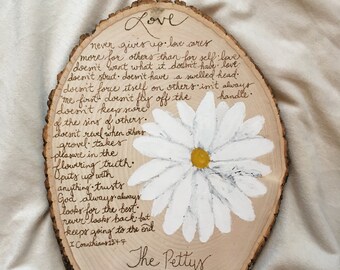 Love
never gives up. love cares
more for others than for self. love
doesn't want what it doesn't have. love
doesn't strut. doesn't have a swelled head.
doesn't force itself on others. isn't always
me first. doesn't fly off the handle.
doesn't keep score
of the sins of others.
doesn't revel when others
grovel. takes
pleasure in the
flowering truth.
puts up with
anything. trusts
God always. always
looks for the best.
never looks back. but
keeps going to the end.
I Corinthians 13:4-7
The Pettys